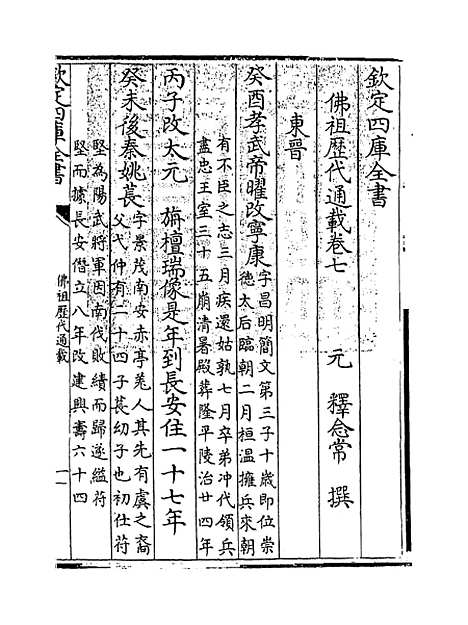 欽定四庫全書
佛祖歴代通載卷七
元 釋念常 撰
東晉
癸酉孝武帝曜改寧康字昌明簡文第三子十歲即位崇
德太后臨朝二月桓温擁兵來朝
有不臣之志三月疾還姑孰七月卒弟冲代領兵
盡忠王室三十五崩清暑殿葬隆平陵治廿四年
丙子改大元 旃檀瑞像是年到長安住一十七年
癸未後秦姚萇字景茂南安赤亭羌人其先有虞之裔
父弋仲有二十四子萇幼子也初仕苻
堅為陽武將軍因南伐敗績而歸遂縊苻
堅而據長安僭立八年改建興壽六十四
欽定四庫全書
佛祖歴代通載
一